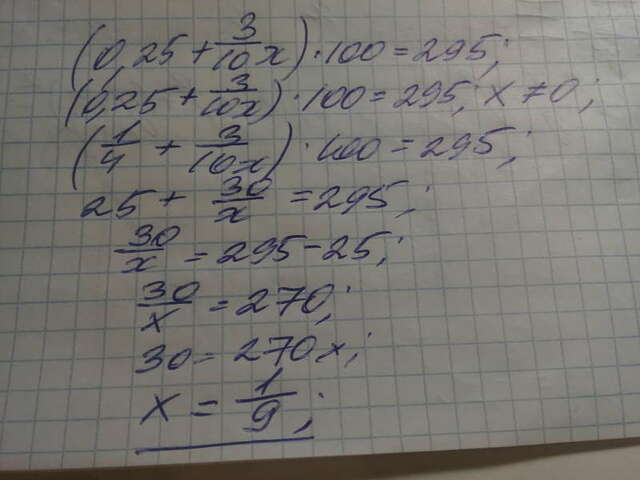 (0,25 + 3/10x) · 100 = 295;
(0,25 + 3/10x) · 100 = 295, x ≠ 0;
(1/4 + 3/10x) · 100 = 295;
25 + 30/x = 295;
30/x = 295 - 25;
30/x = 270;
30 = 270x;
x = 1/9;